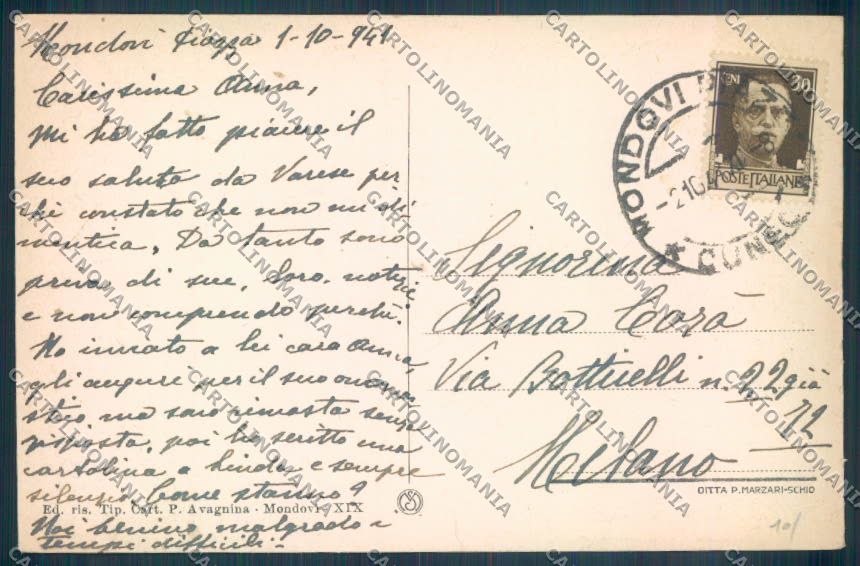 Mondovì Piazza 1-10-941
Carissima Anna,
Mi ha fatto piacere il
suo saluto da Varese per-
chè constato che non mi di-
mentica. Da tanto sono
priva di sue, loro notizie
e non comprendo perchè.
Ho inviato a lei cara Anna,
gli auguri per il suo onoma
stico ma sono rimasta senza
risposta, poi ho scritto una
cartolina a Linda e sempre
silenzio. Come stanno?
Ed. ris. Tip. Cart. P. Avagnina - Mondovì - XIX
Noi benino, malgrado i
tempi difficili.-
CENI 30
POSTE ITALIANE
MONDOVI
CUNEO
Signorina
Anna Corà
Via Botticelli n. 22 già
12
Milano
DITTA P. MARZARI-SCHIO
10/
CARTOLINOMANIA